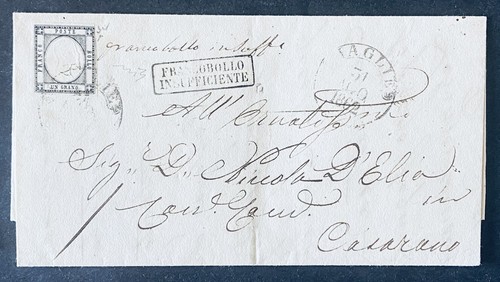 FRANCO
POSTE
BOLLO
UN GRANO
francobollo insuffte
FRANCOBOLLO
INSUFFICIENTE
MAGLIE
31
All'Ornatis
Sig. D. Nicola D'Elia
in
Casarano